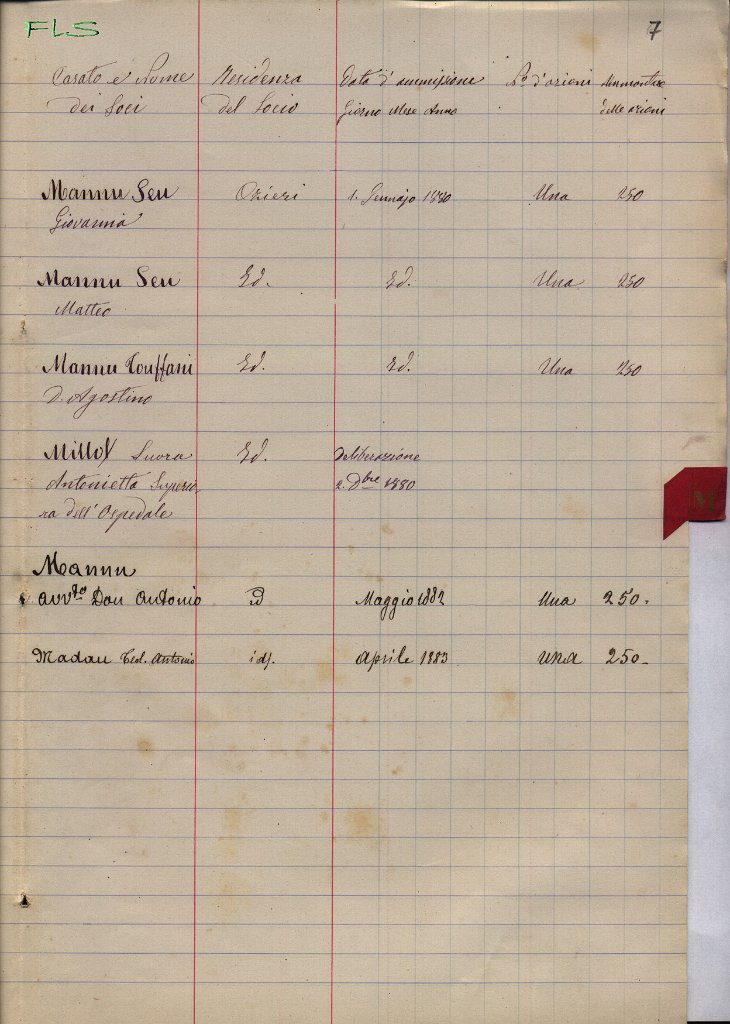 FLS
7
Casato e Nome Residenza Data d'ammissione No. d'azioni Ammontare
dei Soci del Socio Giorno Mese Anno delle azioni
Mannu Seu Ozieri 1. Gennajo 1880 Una 250
Giovannia
Mannu Seu Id. Id. Una 250
Matteo
Mannu Id. Id. Una 250
D. Agostino
Millot Suora Id. Deliberazione
Antonietta Superio 2. Dbre 1880
ra dell'Ospedale
M
Mannu
avvto Don Antonio id Maggio 1882 Una 250.
Madau Teol. Antonio id. Aprile 1883 una 250-